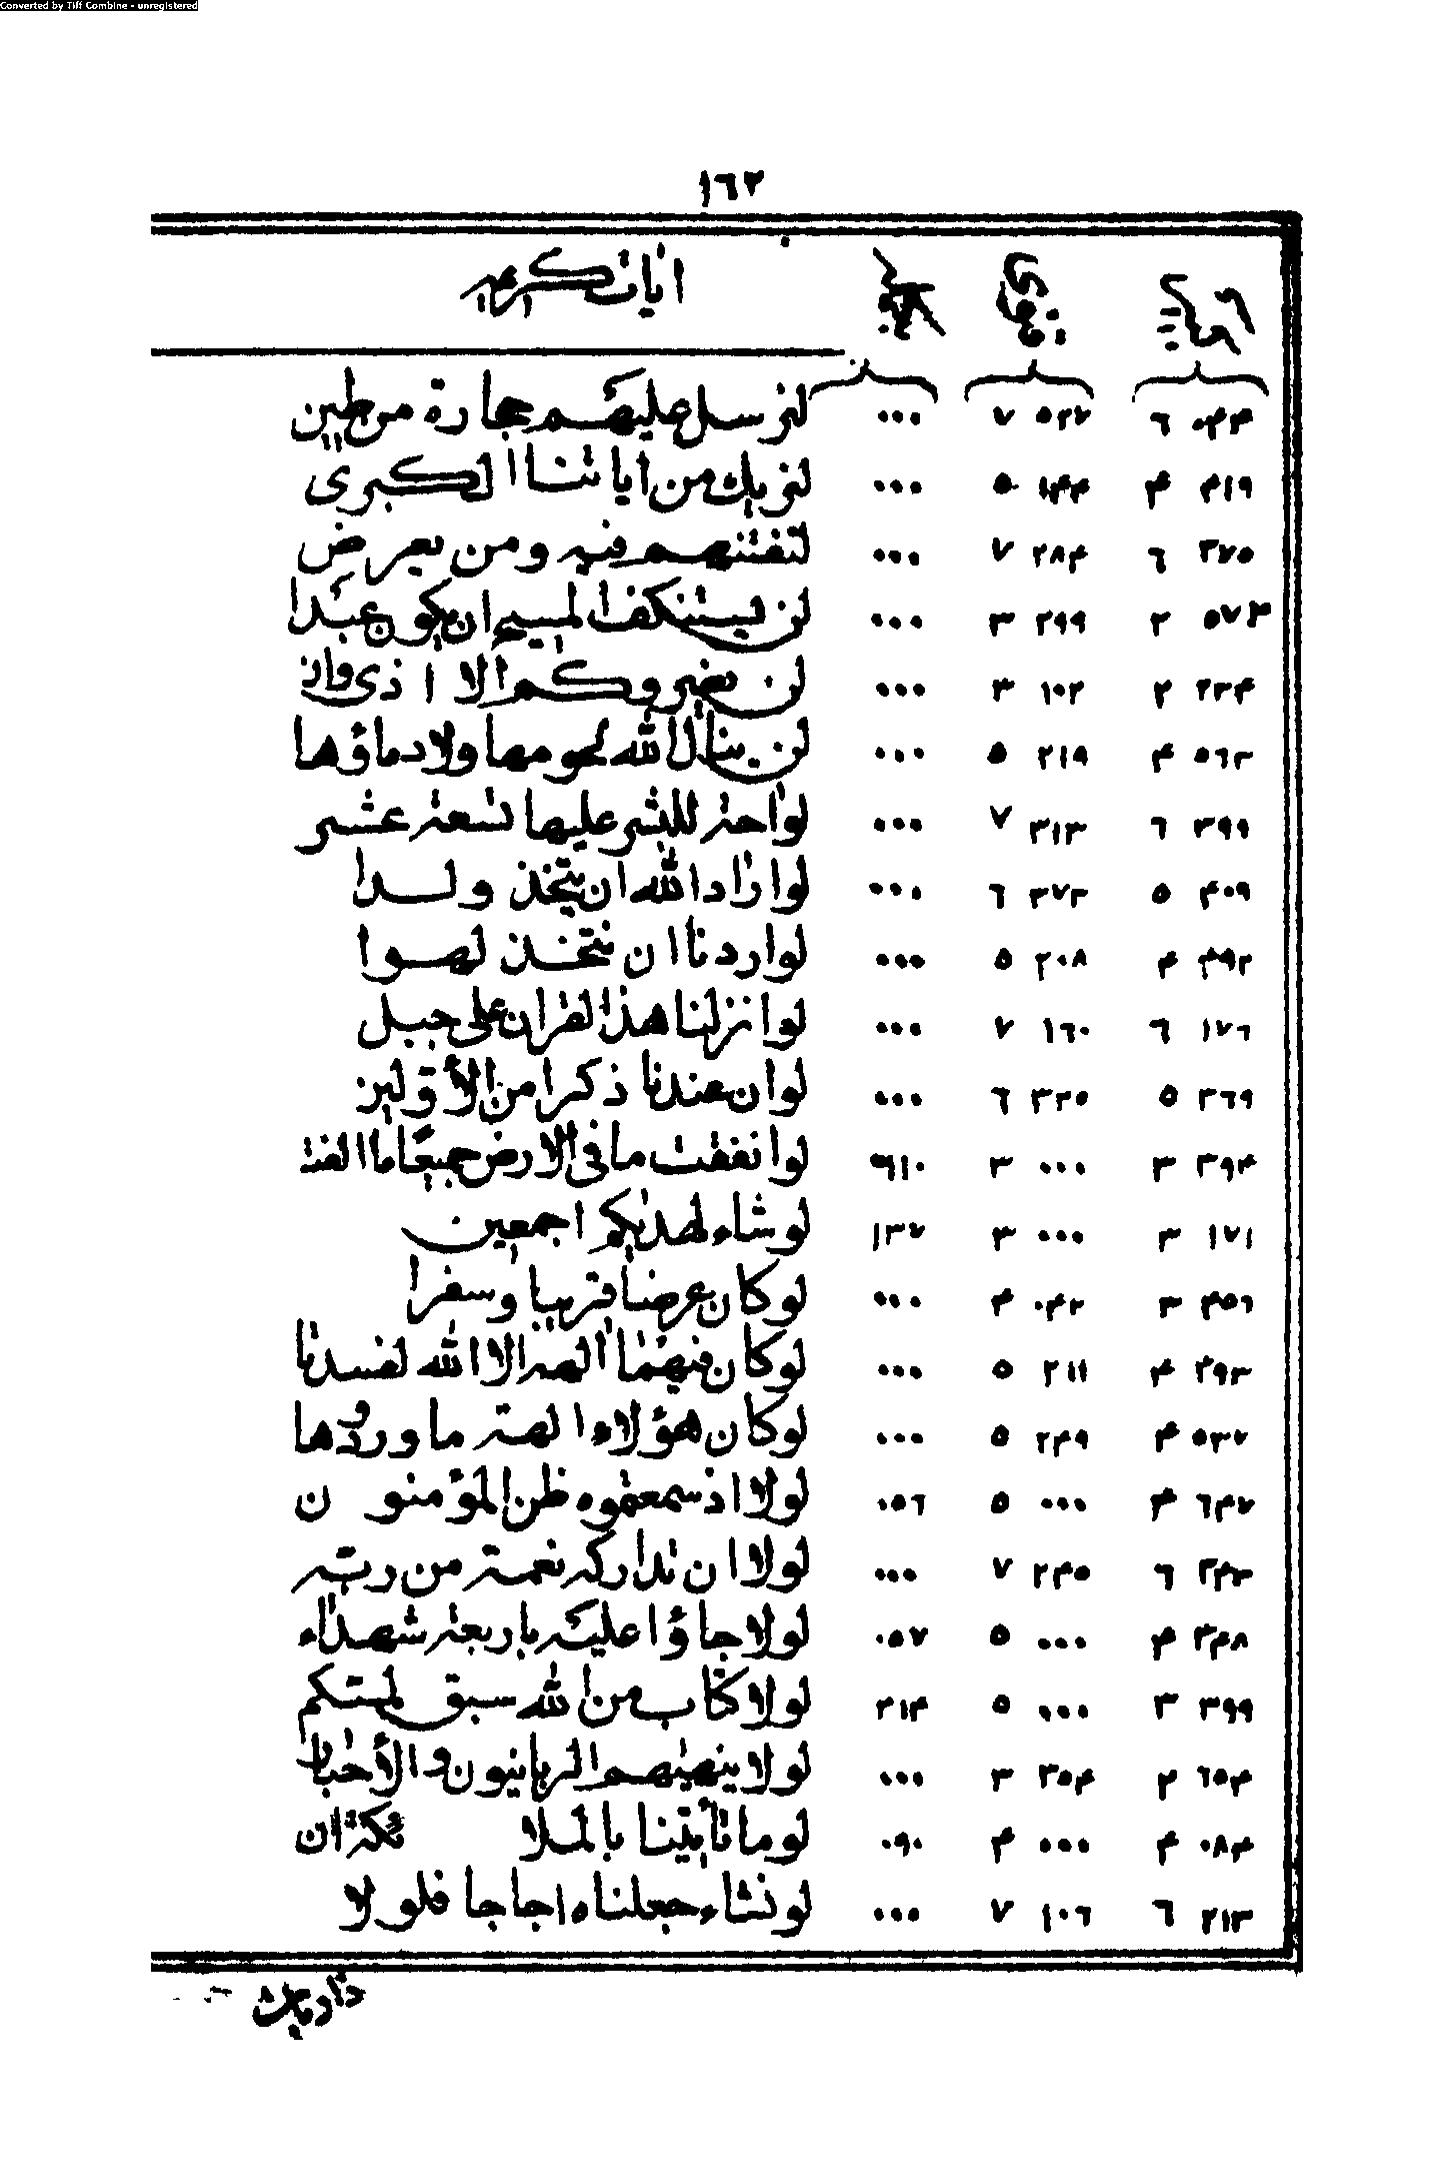 Converted by Tiff Combine - unregistered
١٦٢
ايات كريمه
٠٤٤ ٦ ٥٢٧ ٧ ٠٠٠ لنرسل عليهم حجارة من طين
٤١٩ ۴ ١۴۴ ٥ ٠٠٠ لنريك من اياتنا الكبرى
٣٧٥ ٦ ٢٨۴ ٧ ٠٠٠ لنفتنهم فيه ومن يعرض
٥٧٣ ٢ ٢٩٩ ٣ ٠٠٠ لن يستنكف المسيح ان يكون عبدا
٢٣۴ ٢ ١٠٢ ٣ ٠٠٠ لن يضروكم الا اذى وان
٥٦٣ ۴ ٢١٩ ٥ ٠٠٠ لن ينال الله لحومها ولا دماؤها
٣٩٩ ٦ ٣١٣ ٧ ٠٠٠ لواحة للبشر عليها تسعة عشر
۴٠٩ ٥ ٣٧٣ ٦ ٠٠٠ لو اراد الله ان يتخذ ولدا
۴ ٢٠٨ ٥ ٠٠٠ لو اردنا ان نتخذ لهوا
١٧٦ ٦ ١٦٠ ٧ ٠٠٠ لو انزلنا هذا القران على جبل
٣٦٩ ٥ ٣٢٥ ٦ ٠٠٠ لو ان عندنا ذكرا من الأولين
٣٩۴ ٣ ٠٠٠ ٣ ٦١٠ لو انفقت ما في الارض جميعا ما الفت
١٧١ ٣ ٠٠٠ ٣ ١٣٧ لو شاء لهديكم اجمعين
۴٥٦ ٣ ٠۴٢ ۴ ٠٠٠ لو كان عرضا قريبا وسفرا
٣٩٣ ۴ ٢١١ ٥ ٠٠٠ لو كان فيهما الهة الا الله لفسدتا
٥٣٧ ۴ ٢۴٩ ٥ ٠٠٠ لو كان هؤلاء الهة ما وردوها
٦۴٧ ۴ ٠٠٠ ٥ ٠٥٦ لولا اذ سمعتموه ظن المؤمنون
٣۴٣ ٦ ٢۴٥ ٧ ٠٠٠ لولا ان تداركه نعمة من ربه
٣۴٨ ۴ ٠٠٠ ٥ ٠٥٧ لولا جاؤا عليه باربعة شهداء
٣٩٩ ٣ ٠٠٠ ٥ ٢١۴ لولا كتاب من الله سبق لمستكم
٦٥۴ ٢ ٣٥۴ ٣ ٠٠٠ لولا ينهيهم الربانيون والأحبار
٠٨۴ ۴ ٠٠٠ ۴ ٠٩٠ لو ما تأتينا بالملائكة ان
٢١٣ ٦ ١٠٦ ٧ ٠٠٠ لو نشاء جعلناه اجاجا فلولا